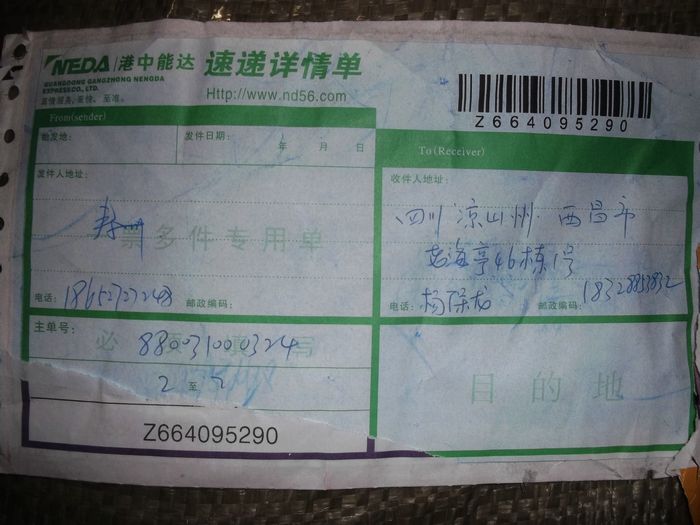 NEDA 港中能达 速递详情单
GUANGDONG GANGZHONG NENGDA
EXPRESS CO., LTD.
Http://www.nd56.com
Z664095290
From(sender)
始发地:
发件日期: 年 月 日
发件人地址:
一票多件专用单
电话: 18652727248 邮政编码:
To(Receiver)
收件人地址:
四川 凉山州 西昌市
海亭46栋1号
电话: 杨保龙 邮政编码: 18328853832
主单号: 880031000324
必须填写
2 至 2
目的地
Z664095290